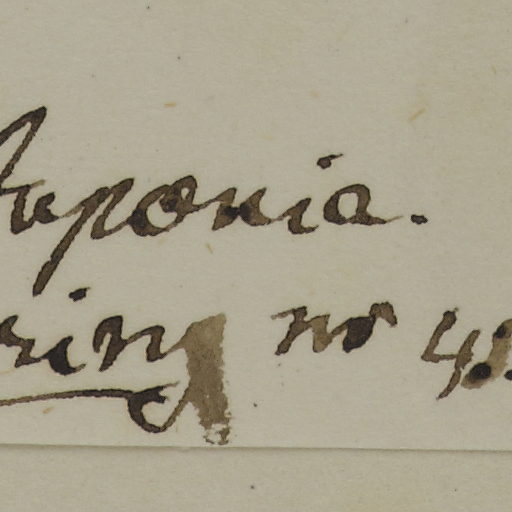 Japonia.
ring no 48.